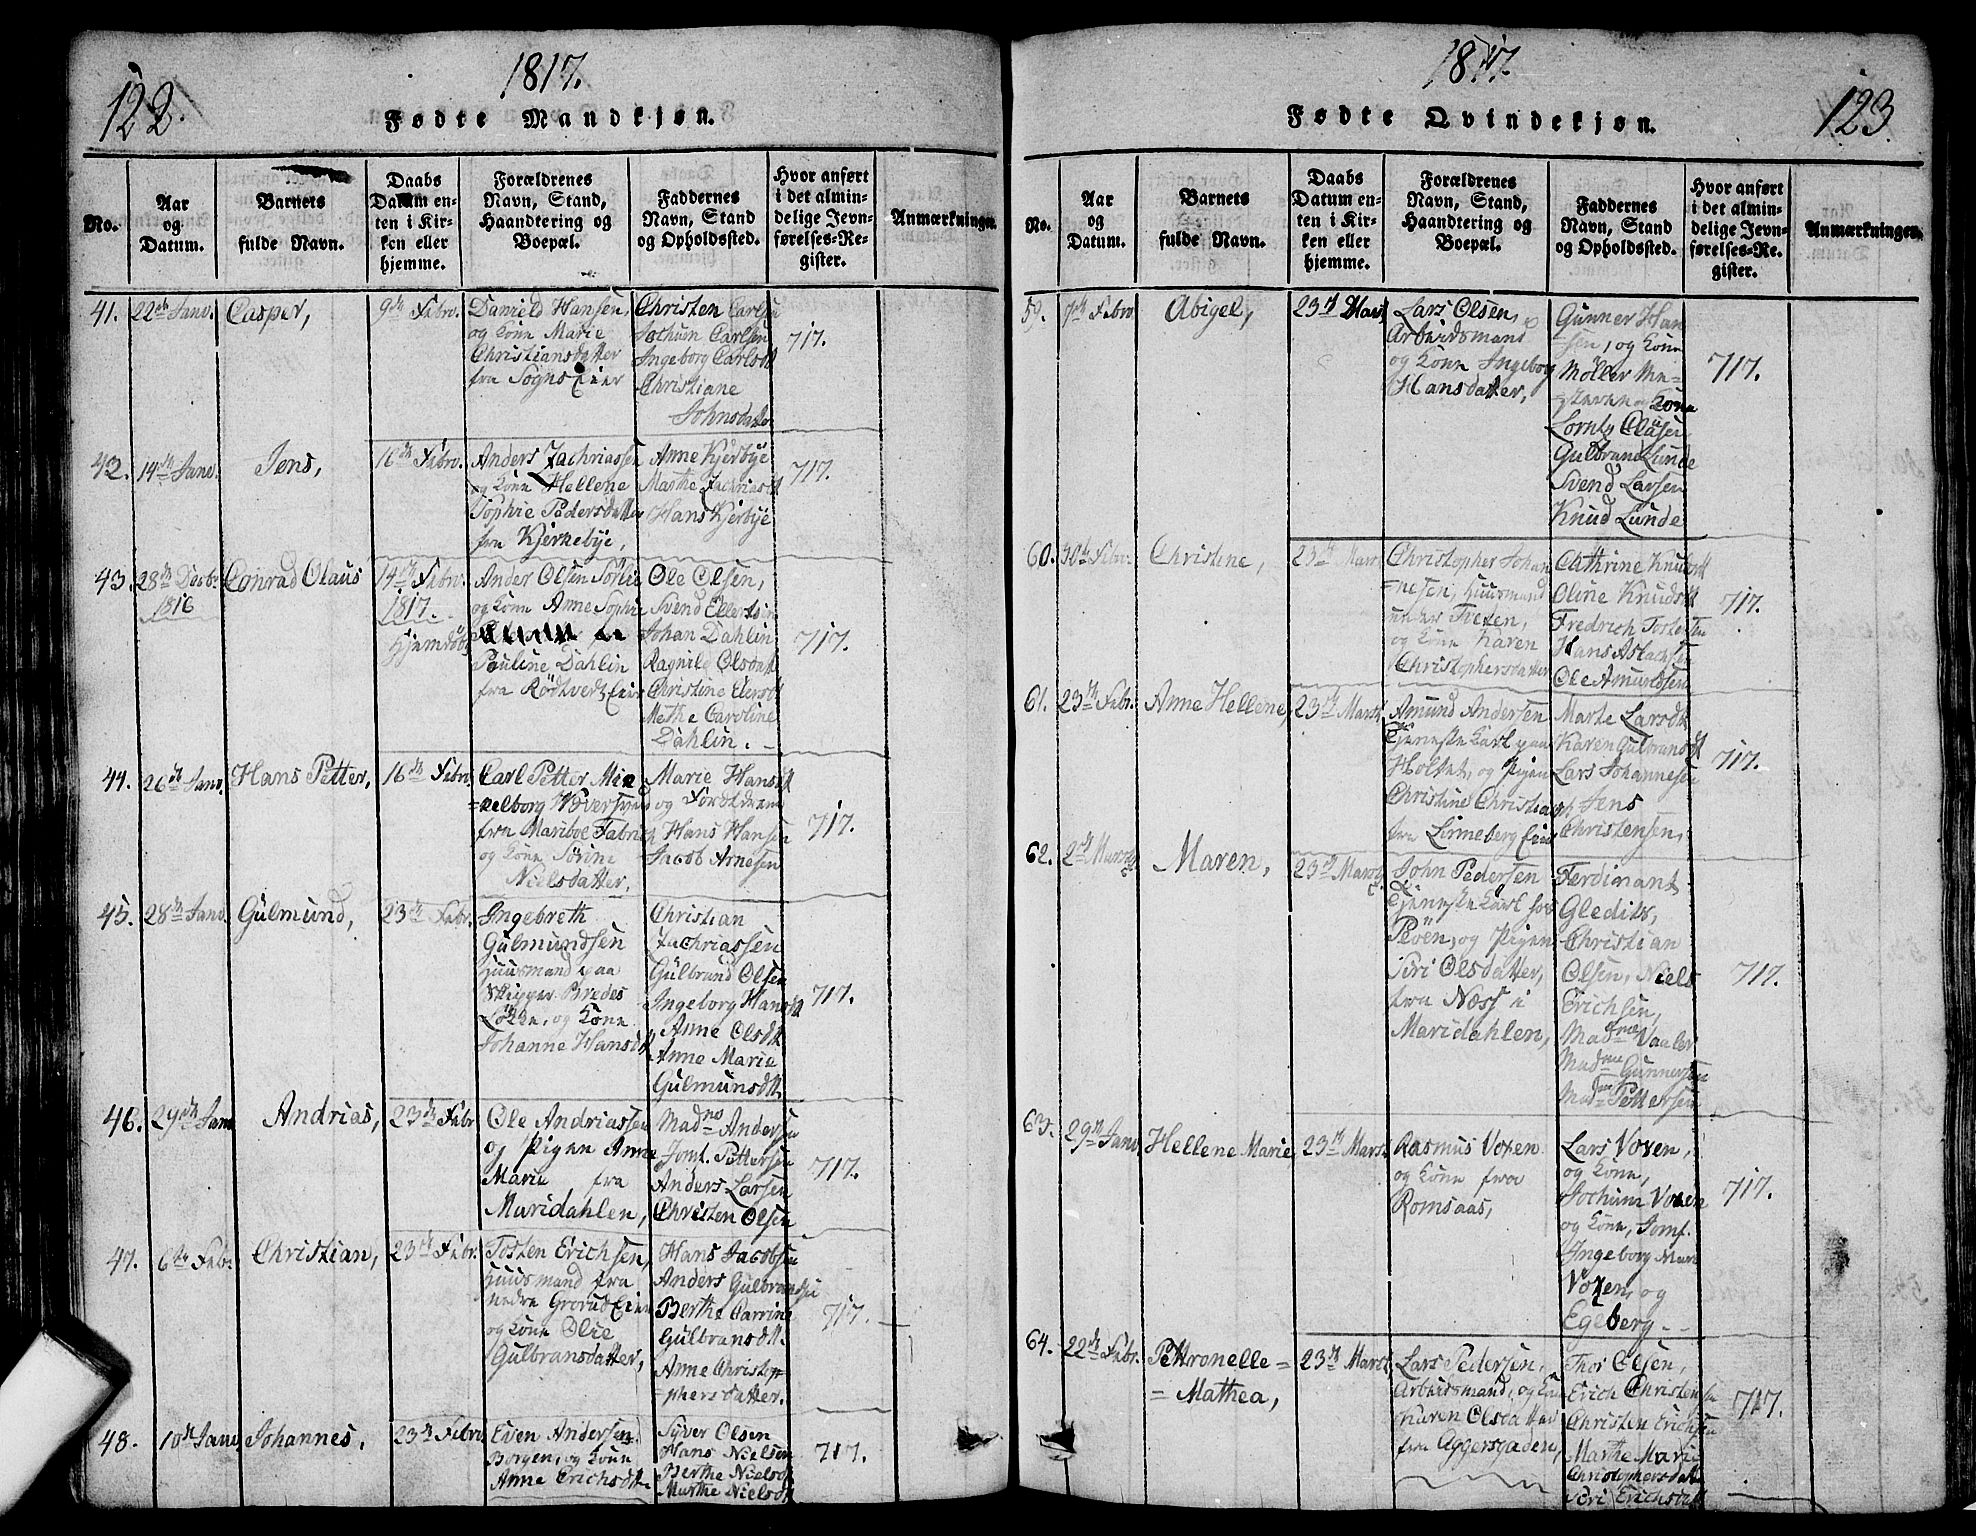 122.
1817.
Fødte Mandkjøn.
No.
Aar
og
Datum.
Barnets
fulde Navn.
Daabs
Datum en-
ten i Kir-
ken eller
hjemme.
Forældrenes
Navn, Stand,
Haandtering og
Boepæl.
Faddernes
Navn, Stand
og Opholdssted.
Hvor anført
i det almin-
delige Jevn-
førelses-Re-
gister.
Anmærkninger.
41.
22de Janv.
Casper,
9de Febr.
Daniel Hansen,
og Kone Marie
Christiansdatter
fra Sogns Eier
Christen Carlsen
Jochum Carlsen
Ingeborg Carlsdt
Christiane
Johnsdatter
717.
42.
14de Janv.
Jens,
16de Febr.
Anders Zachriassen
og Kone Hellene
Sophie Pedersdatter
fra Kjerkebye,
Anne Kjerbye
Marthe Zachriasdt
Hans Kjerbye
717.
43.
28de Decbr.
1816
Conrad Olaus
14de Febr.
1817.
Hjemdöbt
Ander Olsen
og Kone Anne Sophie
Pouline Dahlin
fra Rödtvedt Eier
Ole Olsen,
Svend Ellertsen
Johan Dahlin
Ragnild Olsdatt
Christine
Methe Caroline
Dahlin.
717.
44.
26de Janv.
Hans Petter,
16de Febr.
Carl Petter
fra Mariboe Fabrich
og Kone Sörine
Nielsdatter.
Marie Hansdt
og
Hans Hansen
Jacob Arnesen
717.
45.
28de Janv.
Gulmund,
23de Febr.
Ingebreth
Gulmundsen
Huusmand paa
Skipper Bredes
Löken, og Kone
Johanne Hansdt
Christian
Zachriassen
Gulbrand Olsen
Ingeborg Hansdt
Anne Olsdt
Anne Marie
Gulmunsdt
717.
46.
29de Janv
Andrias,
23de Febr
Ole Andriassen
og Pigen Anne
Marie fra
Maridahlen,
Mad. Andersen
Jomf. Pettersen
Anders Larsen
Christen Olsen
717.
47.
6te Febr.
Christian,
23de Febr.
Tosten Erichsen,
Huusmand fra
nedre Grorud Eier
og Kone Olie
Gulbransdatter,
Hans Jacobsen
Anders Gulbrandsen
Berthe Carrine
Gulbransdt.
Anne Christop-
=phersdatter.
717.
48.
10de Janv
Johannes,
23de Febr.
Even Andersen
Borgen, og Kone
Anne Erichsdt
Syver Olsen
Hans Nielsen
Berthe Nielsdt
Marthe Nielsdt
717.
1817.
123
Fødte Qvindekjøn.
No.
Aar
og
Datum.
Barnets
fulde Navn.
Daabs
Datum en-
ten i Kir-
ken eller
hjemme.
Forældrenes
Navn, Stand,
Haandtering og
Boepæl.
Faddernes
Navn, Stand
og Opholdssted.
Hvor anført
i det almin-
delige Jevn-
førelses-Re-
gister.
Anmærkninger.
59.
7de Febr
Abigel,
23de Mars
Lars Olsen,
Arbeidsmand
og Kone Ingeborg
Hansdatter,
Gunner Han
sen, og Kone
Möller Me=
steren og Kone
Clasen
Gulbrand Lunde
Svend Larsen
Knud Lunde
717.
60.
Febr.
Christine,
23de Mars
Christopher Johan
=nesen, Huusmand
under Tveten,
og Kone Karen
Christophersdatter
Cathrine Knudsdt
Oline Knudsdt
Fredrich Tostesen
Hans Aslachsen
Ole Amundsen
717.
61.
23de Febr.
Anne Hellene,
23de Marts
Amund Andersen
Tjeneste Karl paa
Holtet, og Pigen
Christine Christiansdt
fra Linneberg Eier
Marte Larsdt
Karen Gulbransdt
Lars Johannesen
Jens
Christensen,
717.
62.
2de Marts
Maren,
23de Marts
John Pedersen
Tjeneste Karl hos
og Pigen
Siri Olsdatter,
fra Næss i
Maridahlen,
Ferdinant
Gledits,
Christian
Olsen, Niels
Erichsen,
Madme Vaaler
Mad Gunnersen
Mad Pettersen
717.
63.
29de Janv.
Hellene Marie
23de Mars
Rasmus Voxen
og Kone fra
Romsaas,
Lars Voxen,
og Kone,
Jochum Voxen
og Kone, Jomf.
Ingeborg Marie
Voxen, og
Egeberg
717.
64.
22de Febr.
Pettronelle=
=Mathea,
23de Marts
Lars Pedersen,
Arbeidsmand, og Kone
Karen Olsdatter
fra Aggersgaden,
Thor Olsen,
Erich Christensen
Christen Erichsen
Marthe Marie
Christophersdatter
Siri Erichsdt
717.